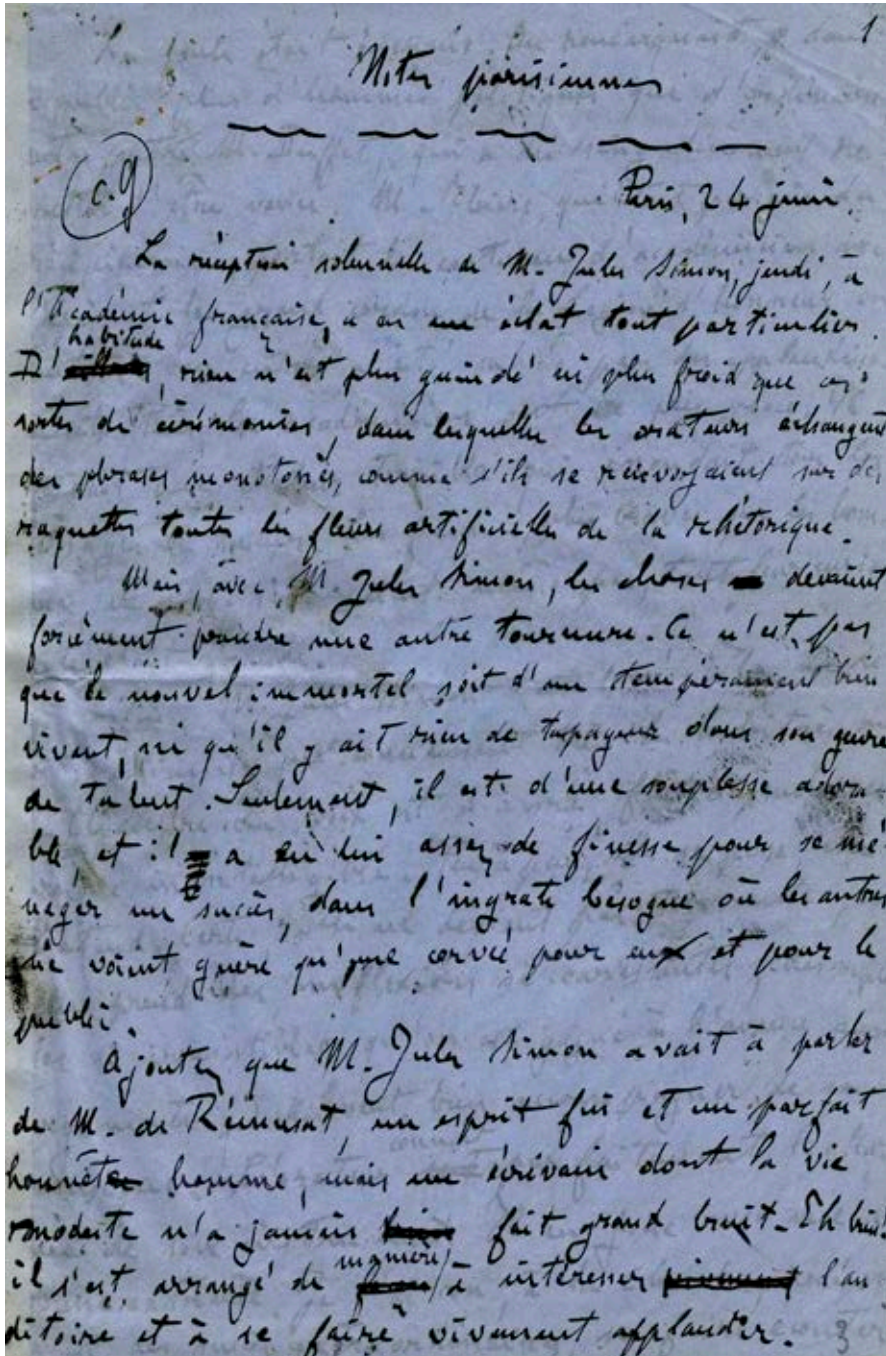 1
Notes parisiennes
c.9
Paris, 24 juin.
La réception solennelle de M. Jules Simon, jeudi, à
l'Académie française, a eu un éclat tout particulier.
habitude
D' , rien n'est plus guindé ni plus froid que ces
sortes de cérémonies, dans lesquelles les orateurs échangent
des phrases monotones, comme s'ils se renvoyaient sur des
raquettes toutes les fleurs artificielles de la rhétorique.
Mais, avec M. Jules Simon, les choses devaient
forcément prendre une autre tournure. Ce n'est pas
que le nouvel immortel soit d'un tempérament bien
vivant, ni qu'il y ait rien de tapageur dans son genre
de talent. Seulement, il est d'une souplesse adora-
ble, et il a en lui assez de finesse pour se mé-
nager un succès, dans l'ingrate besogne où les autres
ne voient guère qu'une corvée pour eux et pour le
public.
Ajoutez que M. Jules Simon avait à parler
de M. de Rémusat, un esprit fin et un parfait
honnête homme, mais un écrivain dont la vie
modeste n'a jamais fait grand bruit. Eh bien!
manière
il s'est arrangé de à intéresser vivement l'au
ditoire et à se faire vivement applaudir.
3